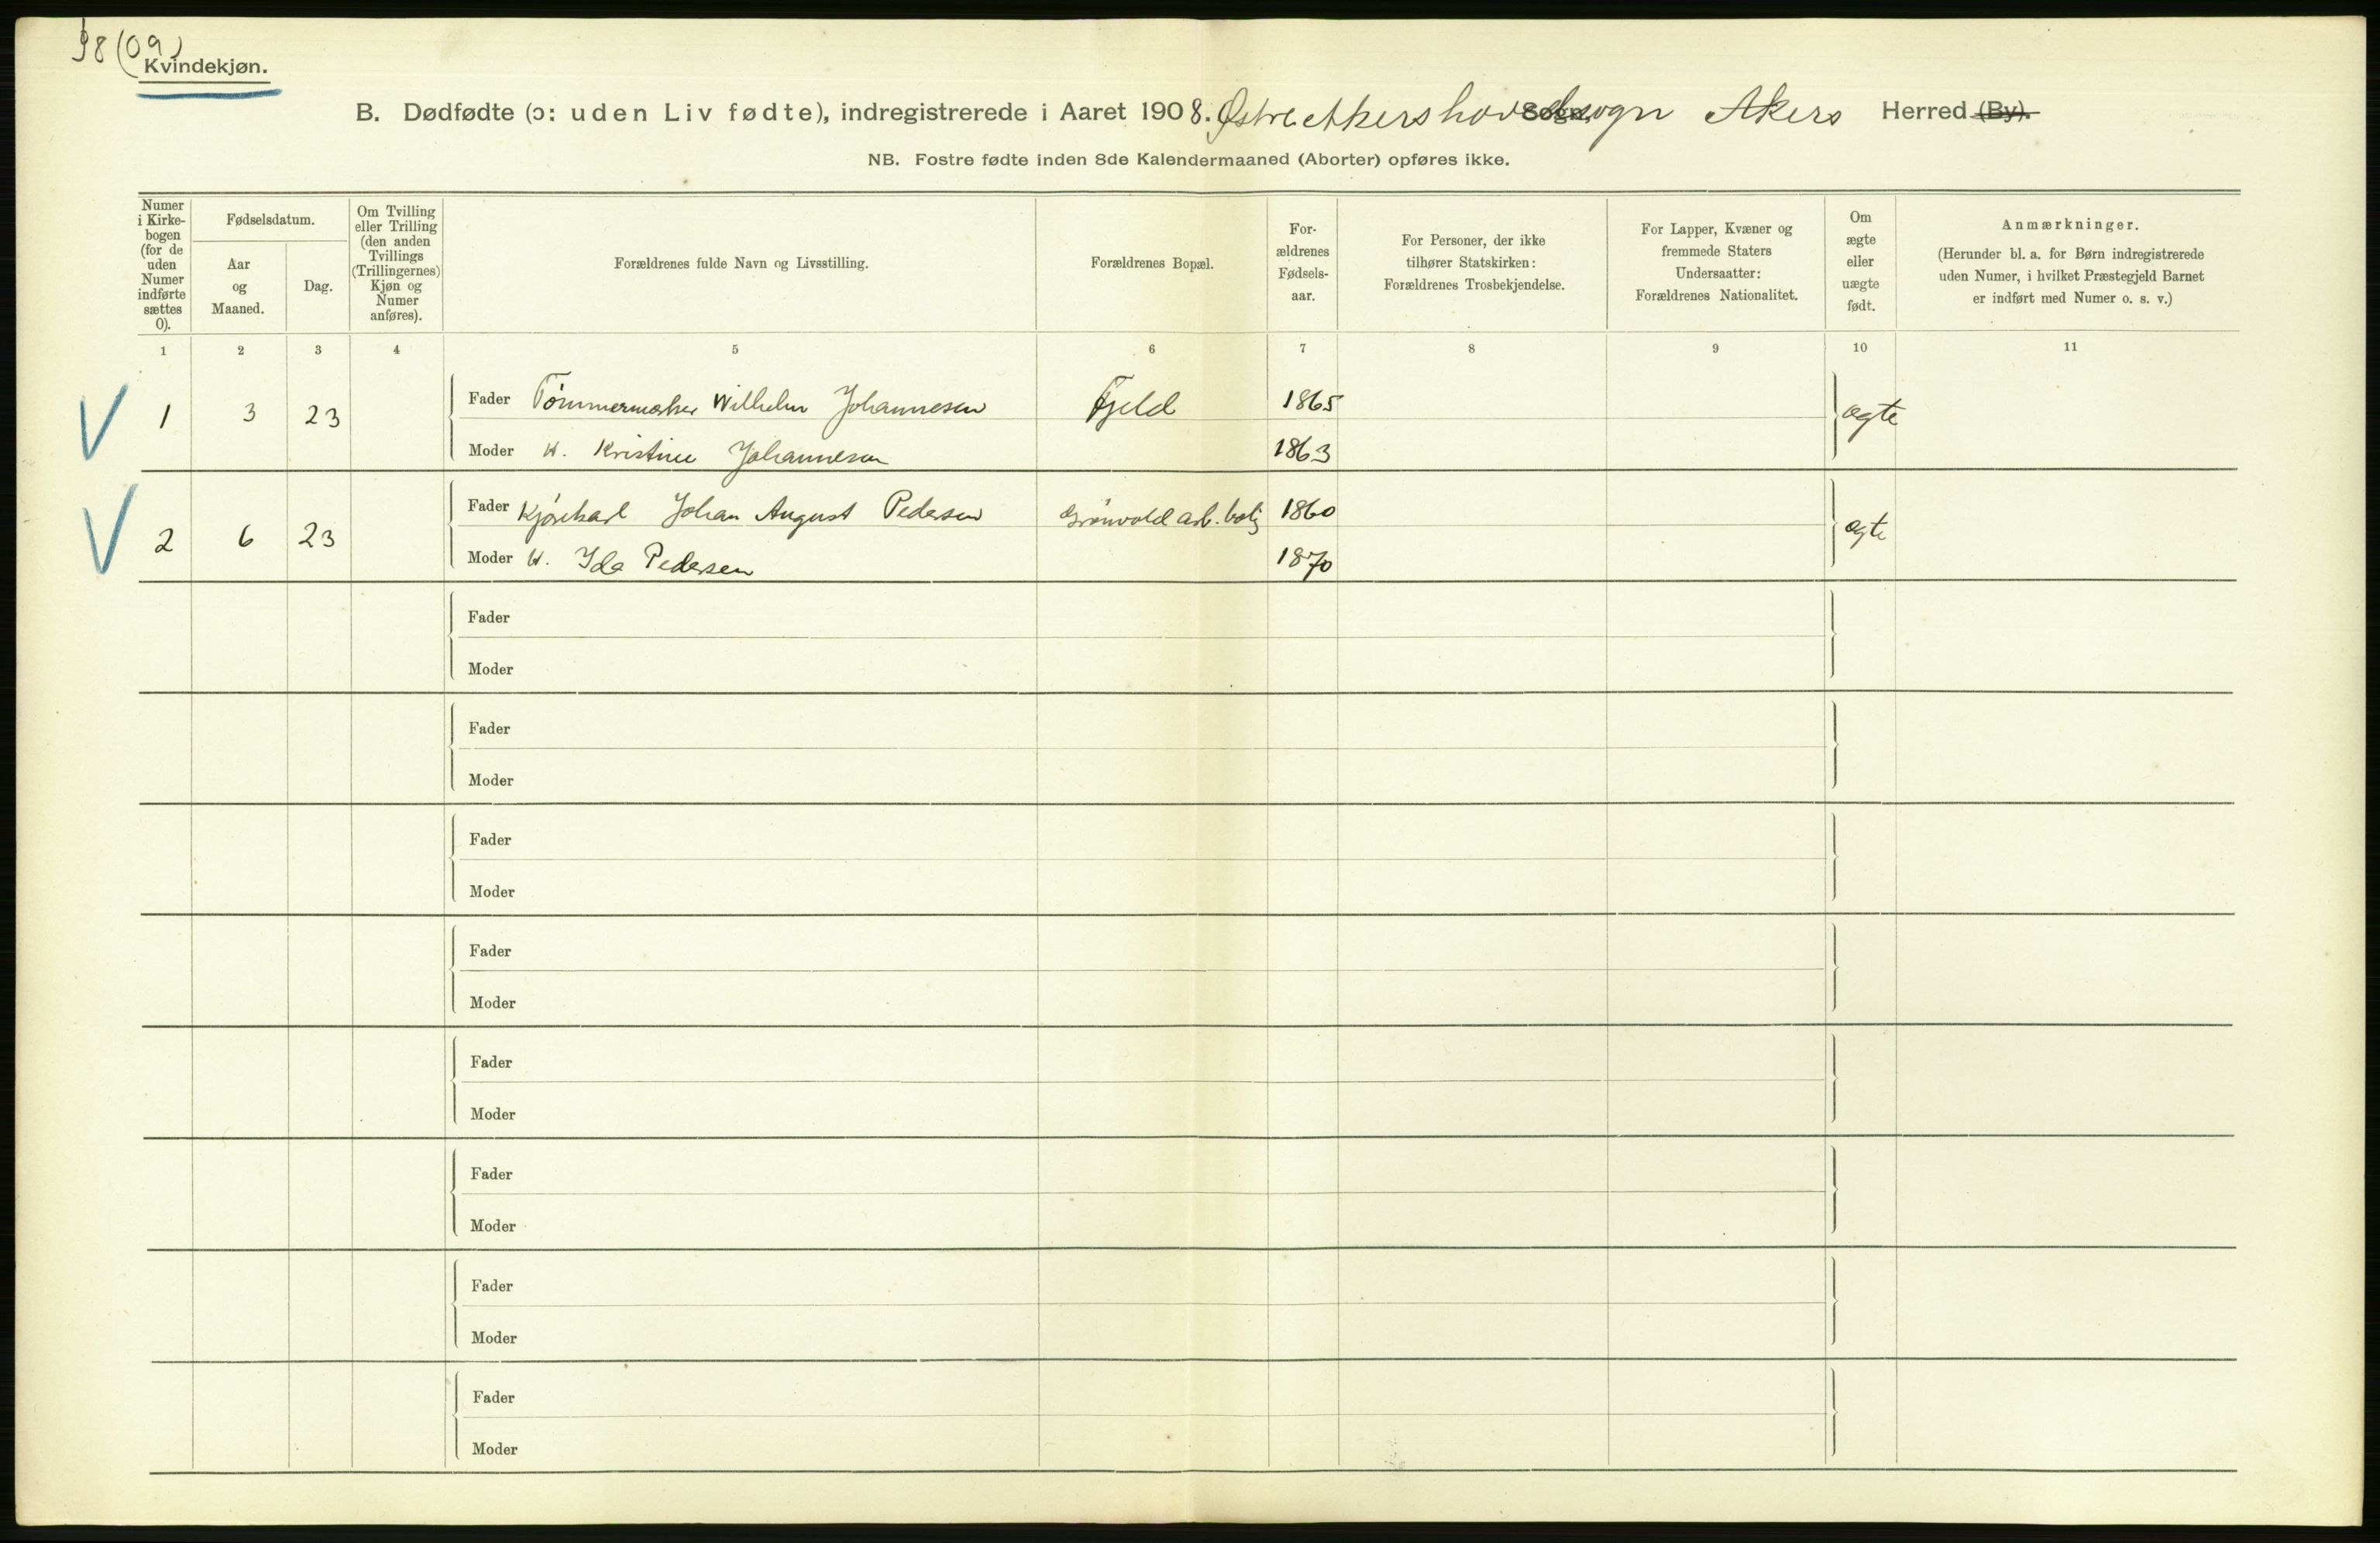 98 (09)
Kvindekjøn.
B. Dødfødte (ɔ: uden Liv fødte), indregistrerede i Aaret 1908. Østre Akers hovedsogn Sogn, Akers Herred (By).
NB. Fostre fødte inden 8de Kalendermaaned (Aborter) opføres ikke.
Numer i Kirkebogen (for de uden Numer indførte sættes 0).
Fødselsdatum.
Aar og Maaned.
Dag.
Om Tvilling eller Trilling (den anden Tvillings (Trillingernes) Kjøn og Numer anføres).
Forældrenes fulde Navn og Livsstilling.
Forældrenes Bopæl.
Forældrenes Fødselsaar.
For Personer, der ikke tilhører Statskirken: Forældrenes Trosbekjendelse.
For Lapper, Kvæner og fremmede Staters Undersaatter: Forældrenes Nationalitet.
Om ægte eller uægte født.
Anmærkninger.
(Herunder bl. a. for Børn indregistrerede uden Numer, i hvilket Præstegjeld Barnet er indført med Numer o. s. v.)
1 2 3 4 5 6 7 8 9 10 11
V 1 3 23 Fader Tømmermerker Wilhelm Johannesen Fjeld 1865 ægte
Moder H. Kristine Johannesen 1863
V 2 6 23 Fader Kjørekarl Johan August Pedersen Grønvold arb. bolig 1860 ægte
Moder H. Ida Pedersen 1870
Fader
Moder
Fader
Moder
Fader
Moder
Fader
Moder
Fader
Moder
Fader
Moder
Fader
Moder
Fader
Moder